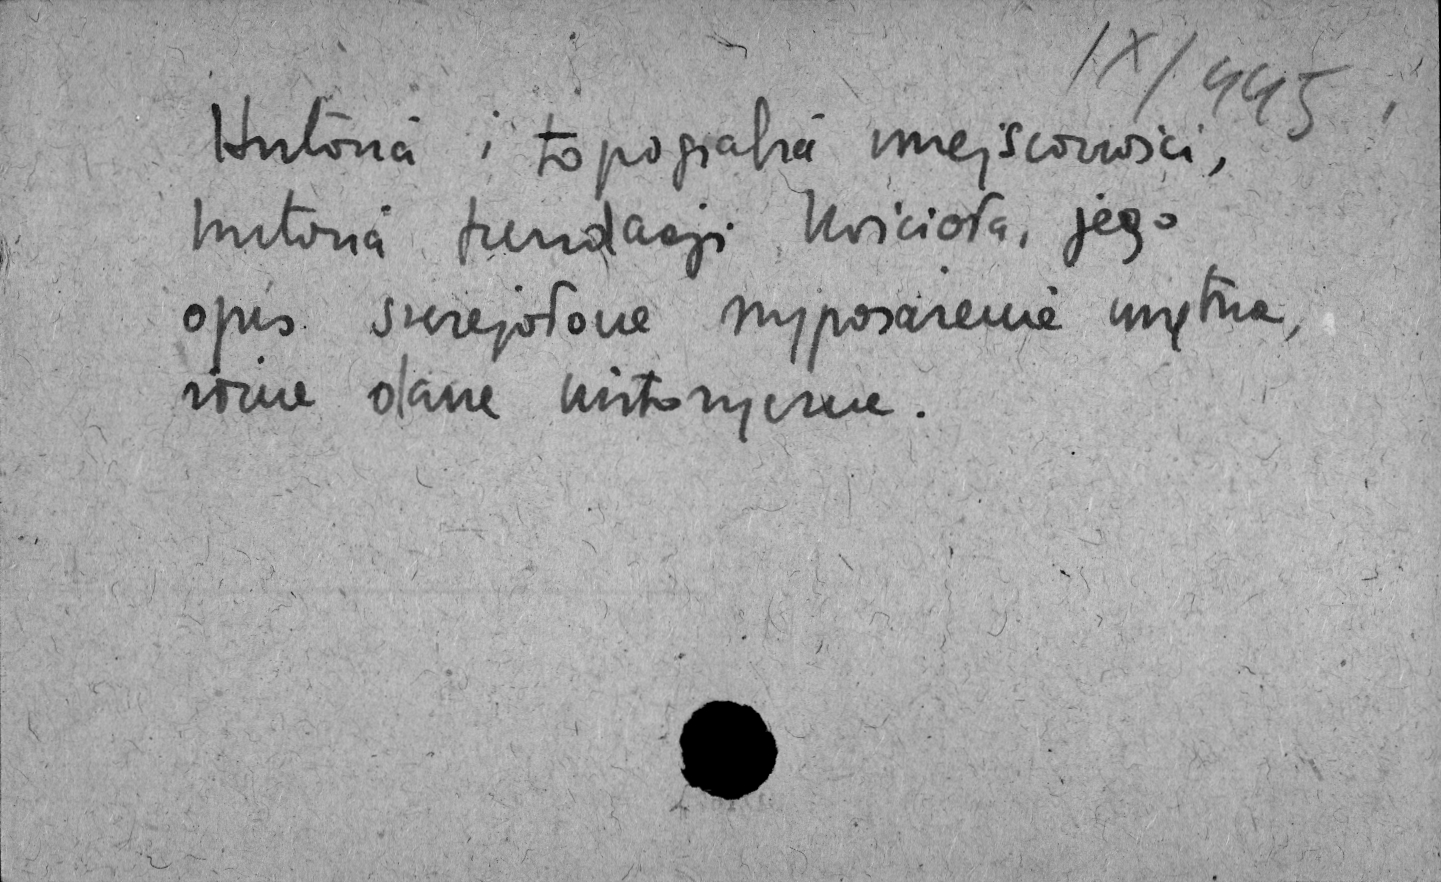 IX/445
Historia i topografia miejscowości,
historia fundacji Kościoła, jego
opis szczegółowe wyposażenie wnętrza,
różne dane historyczne.